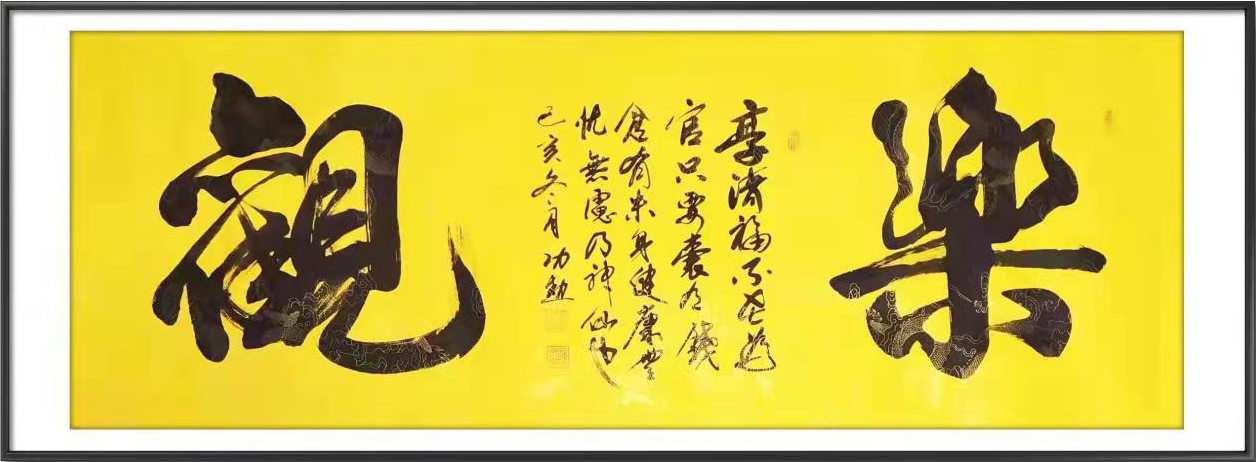 樂
享清福不在為
官只要囊有錢
倉有米身健康無
忧無慮乃神仙
己亥冬月功
觀